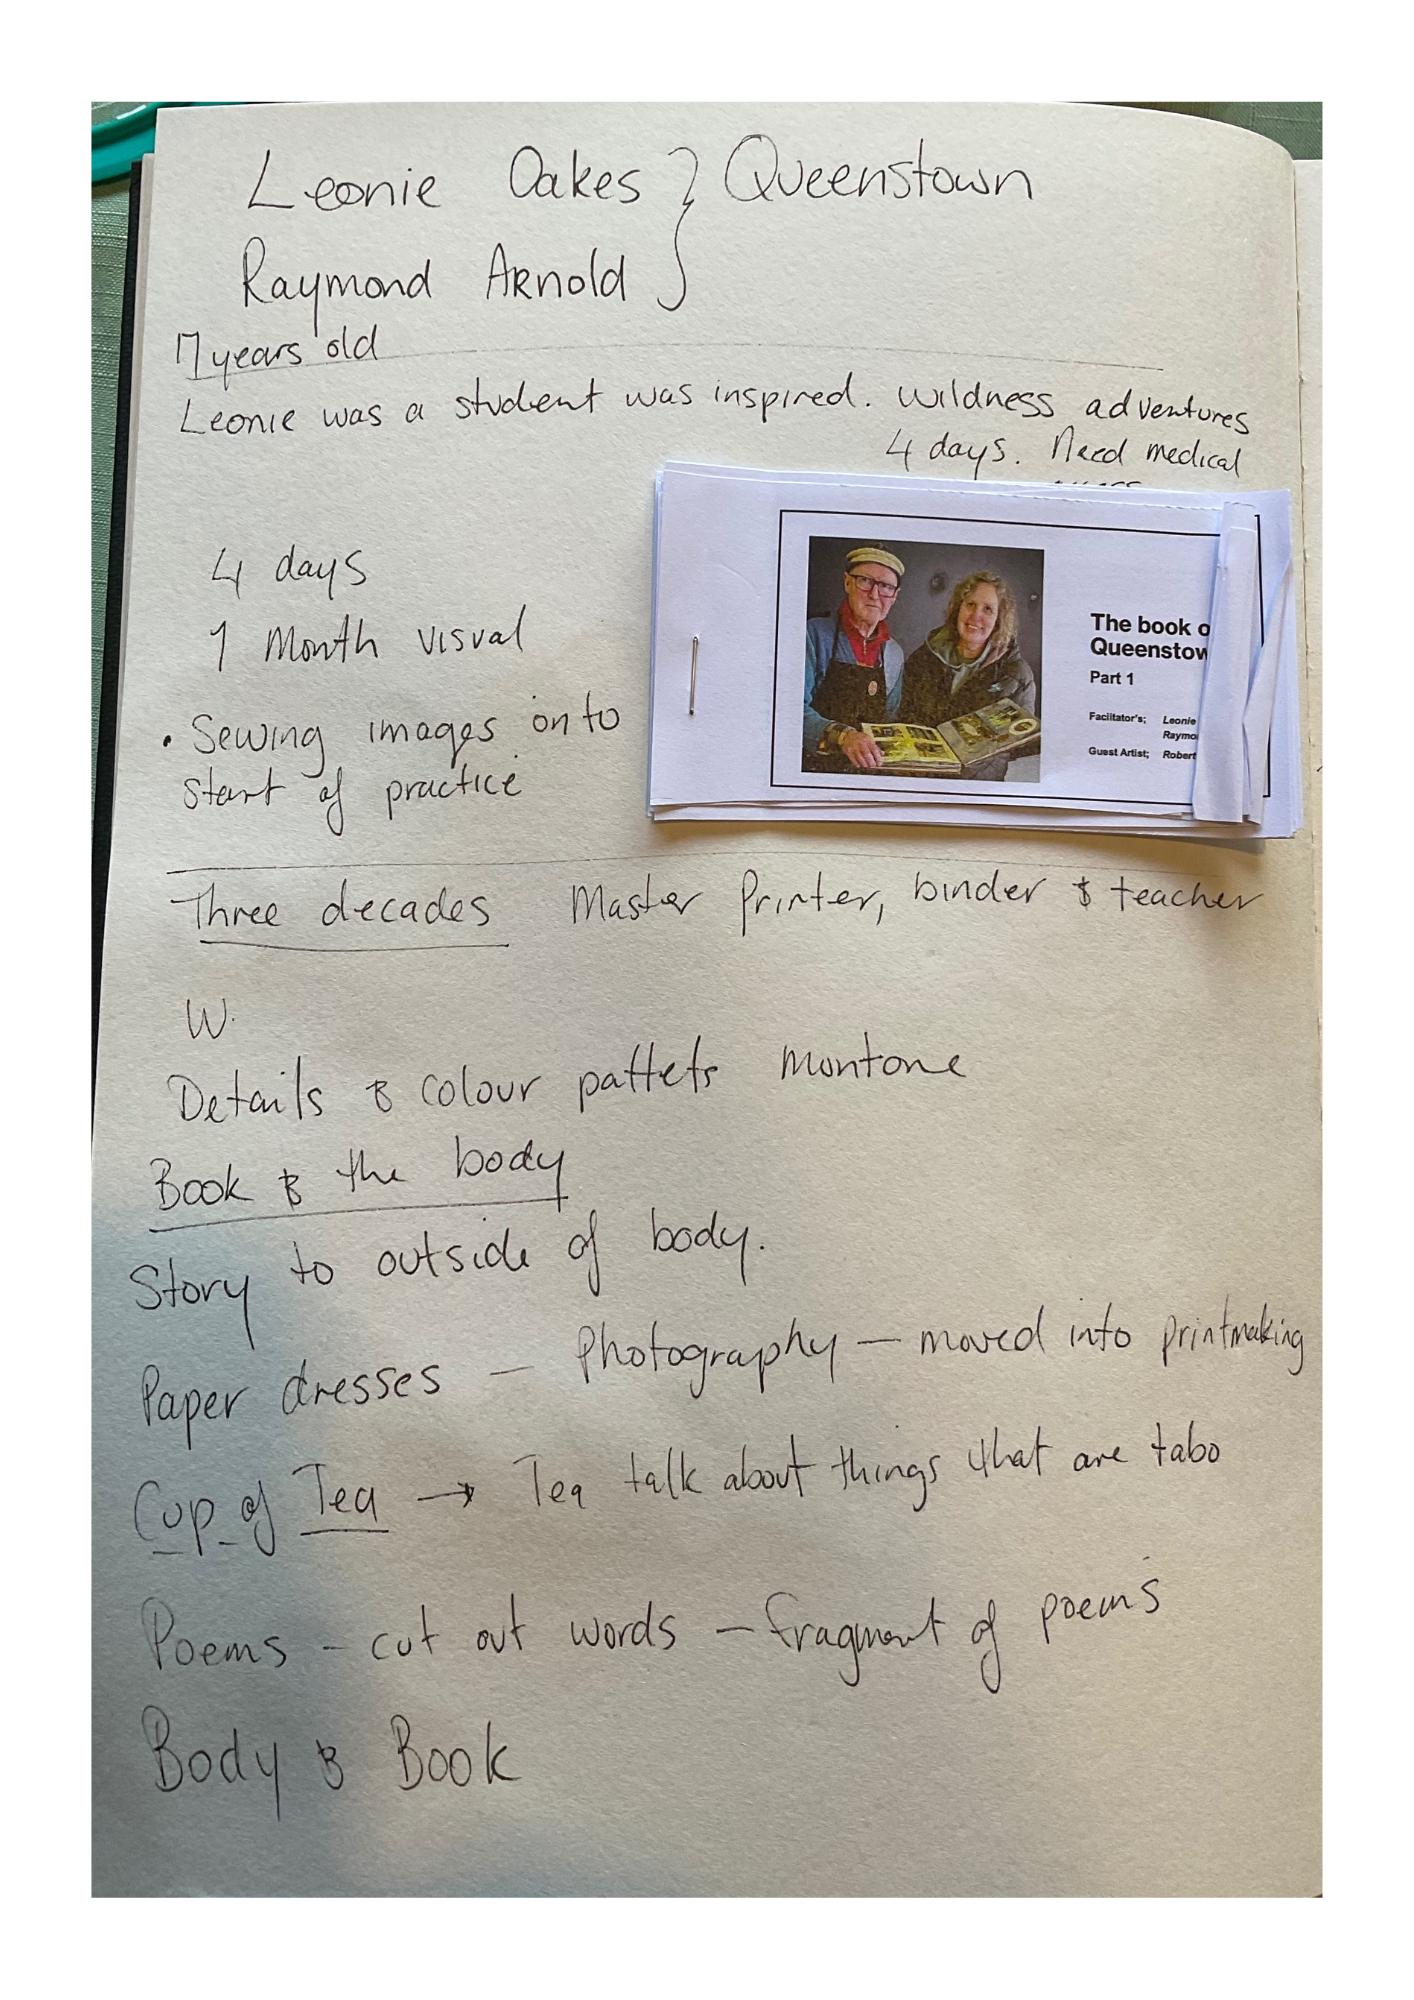 Leonie Oakes } Queenstown
Raymond Arnold
17 years old
Leonie was a student was inspired. wildness adventures
4 days. Need medical
4 days
1 Month visual
• Sewing images onto
start of practice
The book o
Queenstow
Part 1
Faciltator's; Leonie
Raymo
Guest Artist; Robert
Three decades Master Printer, binder & teacher
W.
Details & colour pattets Montone
Book & the body
Story to outside of body.
Paper dresses — Photography — moved into printmaking
Cup of Tea → Tea talk about things that are tabo
Poems – cut out words – fragment of poems
Body & Book